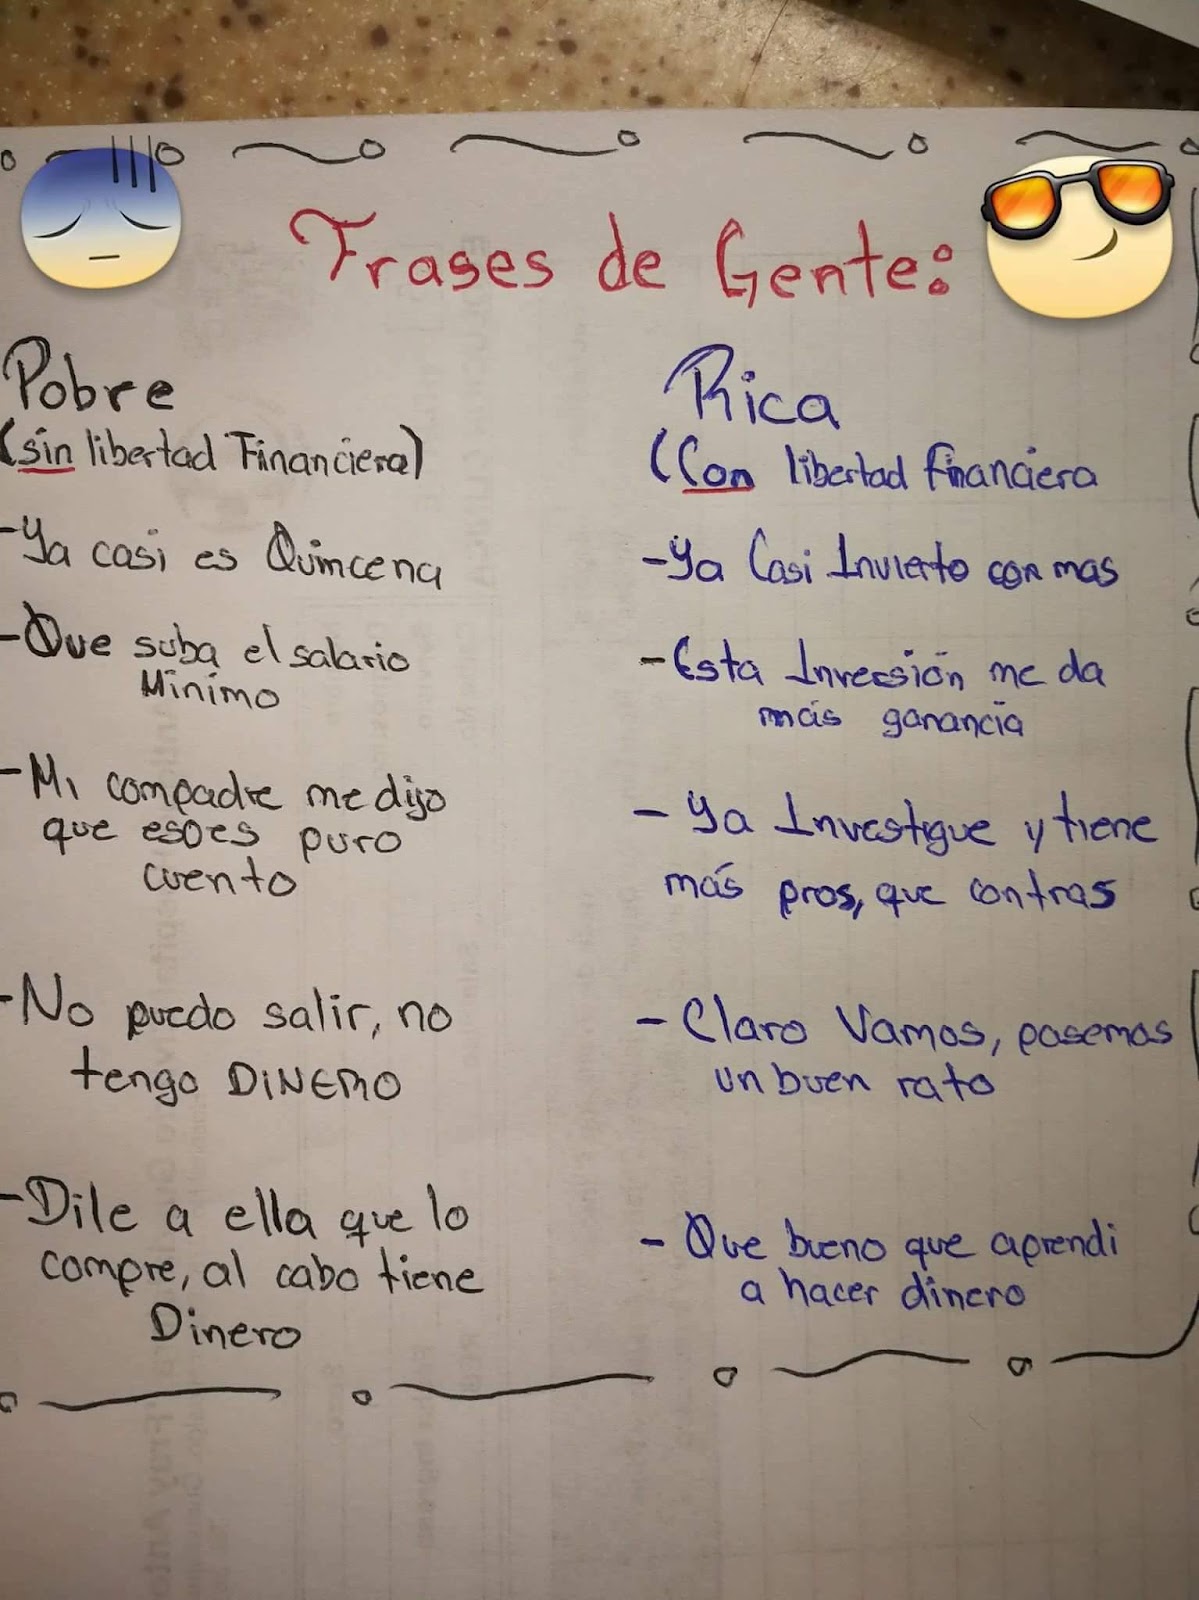 Frases de Gente:
Pobre
(sin libertad Financiera)
-Ya casi es Quincena
-Que suba el salario
Minimo
-Mi compadre me dijo
que eso es puro
cuento
-No puedo salir, no
tengo DINERO
-Dile a ella que lo
compre, al cabo tiene
Dinero
Rica
(Con libertad financiera
-Ya Casi Invierto con mas
-Esta Inversión me da
más ganancia
- Ya Investigue y tiene
más pros, que contras
- Claro Vamos, pasemos
un buen rato
- Que bueno que aprendi
a hacer dinero